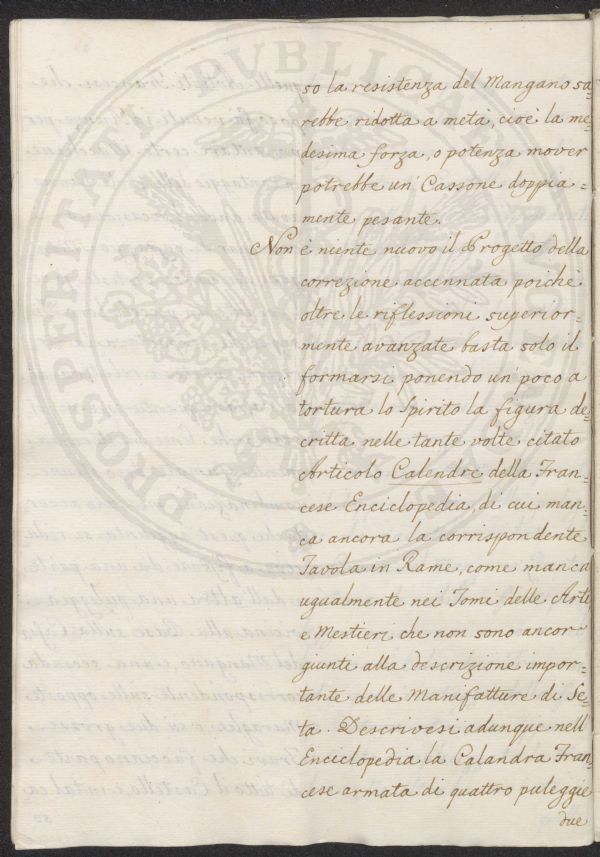 so la resistenza del Mangano sa=
rebbe ridotta a metà, cioè la me=
desima forza, o potenza mover
potrebbe un' Cassone doppia=
mente pesante.
Non è niente nuovo il Progetto della
correzione accennata poichè
oltre le riflessioni superior=
mente avanzate basta solo il
formarsi ponendo un' poco a
tortura lo Spirito la figura de=
critta nelle tante volte citato
Articolo Calendre della Fran=
cese Enciclopedia, di cui man=
ca ancora la corrispondente
Tavola in Rame, come manca
ugualmente nei Tomi delle Arti
e Mestieri che non sono ancor
giunti alla descrizione impor=
tante delle Manifatture di Se=
ta. Descrivesi adunque nell'
Enciclopedia la Calandra Fran=
cese armata di quattro puleggie
due
PROSPERITATI PVBLICAE AVGENDAE